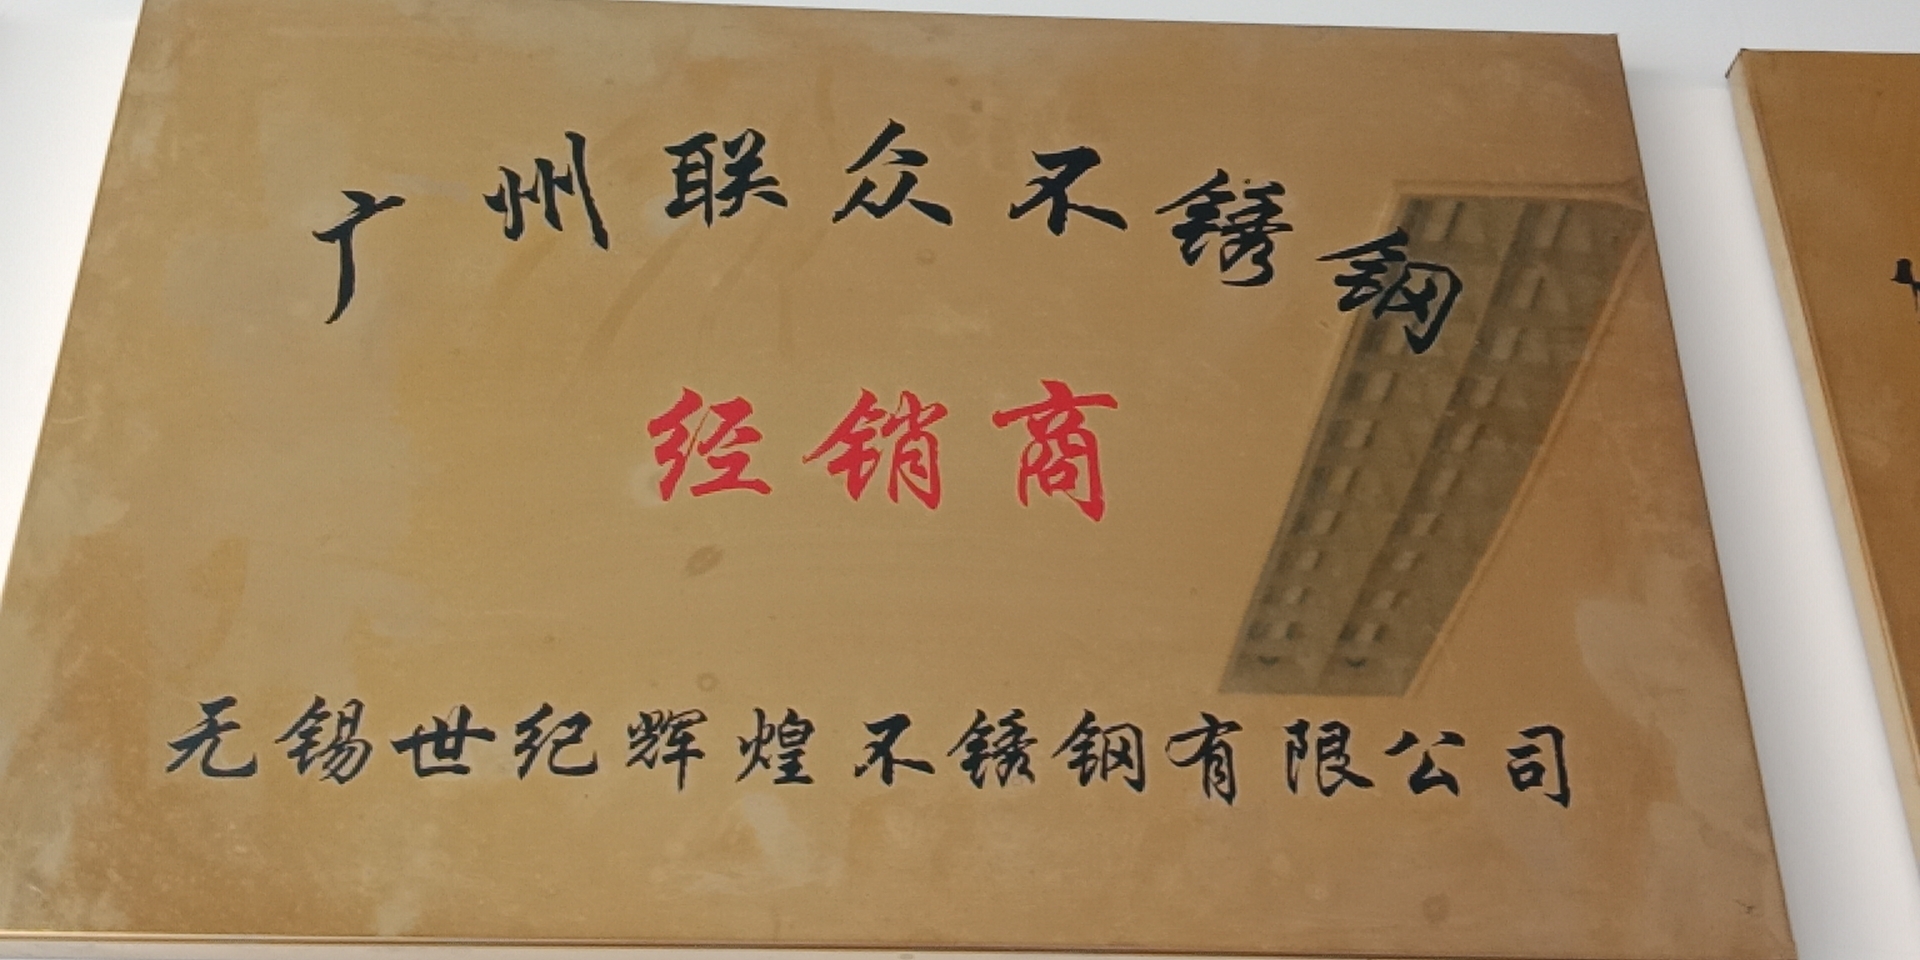 广州联众不锈钢
经销商
无锡世纪辉煌不锈钢有限公司